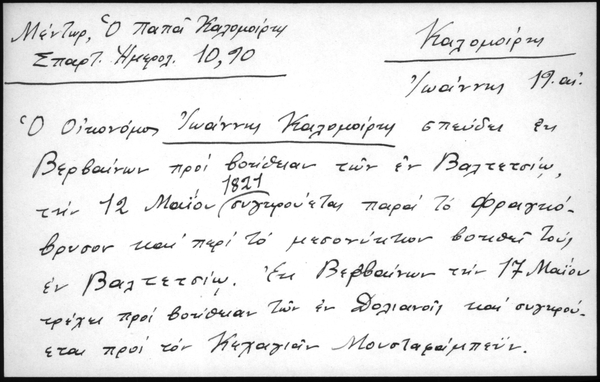 Μέντωρ, Ὁ Παπᾶ Καλομοίρης Καλομοίρης
Σπαρτ. Ἡμερολ. 10, 90
Ἰωάννης 19. αἰ.
Ὁ Οἰκονόμος Ἰωάννης Καλομοίρης σπεύδει ἐκ
Βερβαίνων πρὸς βοήθειαν τῶν ἐν Βαλτετσίῳ,
1821
τὴν 12 Μαΐου συγκρούεται παρὰ τὸ Φραγκό-
βρυσον καὶ περὶ τὸ μεσονύκτιον βοηθεῖ τοὺς
ἐν Βαλτετσίῳ. Ἐκ Βερβαίνων τὴν 17 Μαΐου
τρέχει πρὸς βοήθειαν τῶν ἐν Δολιανοῖς καὶ συγκρού-
εται πρὸς τὸν Κεχαγιᾶν Μουσταφάμπεϋν.